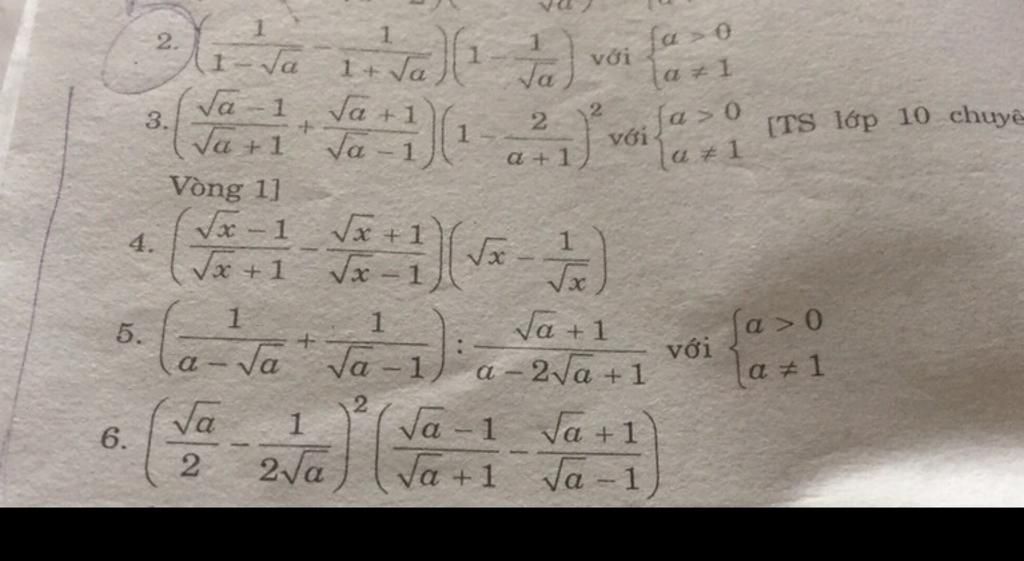 2. $\left(\frac{1}{1-\sqrt{a}} - \frac{1}{1+\sqrt{a}}\right)\left(1 - \frac{1}{\sqrt{a}}\right)$ với $\begin{cases} a > 0 \\ a \neq 1 \end{cases}$
3. $\left(\frac{\sqrt{a}-1}{\sqrt{a}+1} + \frac{\sqrt{a}+1}{\sqrt{a}-1}\right)\left(1 - \frac{2}{a+1}\right)^2$ với $\begin{cases} a > 0 \\ a \neq 1 \end{cases}$ [TS lớp 10
Vòng 1]
4. $\left(\frac{\sqrt{x}-1}{\sqrt{x}+1} - \frac{\sqrt{x}+1}{\sqrt{x}-1}\right)\left(\sqrt{x} - \frac{1}{\sqrt{x}}\right)$
5. $\left(\frac{1}{a-\sqrt{a}} + \frac{1}{\sqrt{a}-1}\right) : \frac{\sqrt{a}+1}{a-2\sqrt{a}+1}$ với $\begin{cases} a > 0 \\ a \neq 1 \end{cases}$
6. $\left(\frac{\sqrt{a}}{2} - \frac{1}{2\sqrt{a}}\right)^2\left(\frac{\sqrt{a}-1}{\sqrt{a}+1} - \frac{\sqrt{a}+1}{\sqrt{a}-1}\right)$